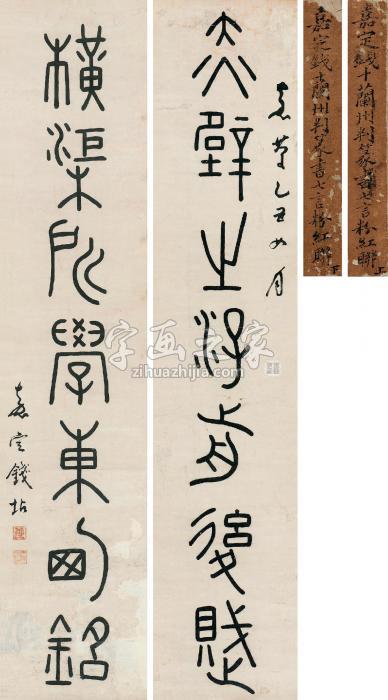 嘉定錢十蘭州判篆書七言粉紅聯
嘉定錢十蘭州判篆書七言粉紅聯 下
嘉慶乙丑如月
赤壁之游前後賦
橫渠所學東西銘
嘉定錢坫
字画之家
zihuazhijia.com